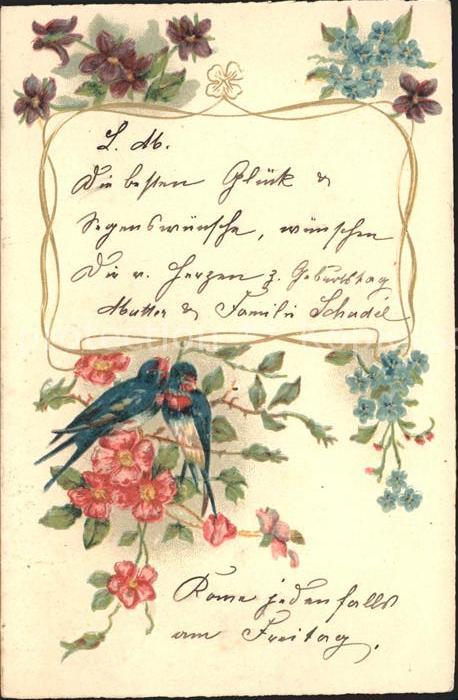 L. M.
Die besten Glück &
Segenswünsche, wünschen
Dir v. Herzen z. Geburtstag
Mutter & Familie Schadel
Kome jedenfalls
am Freitag.